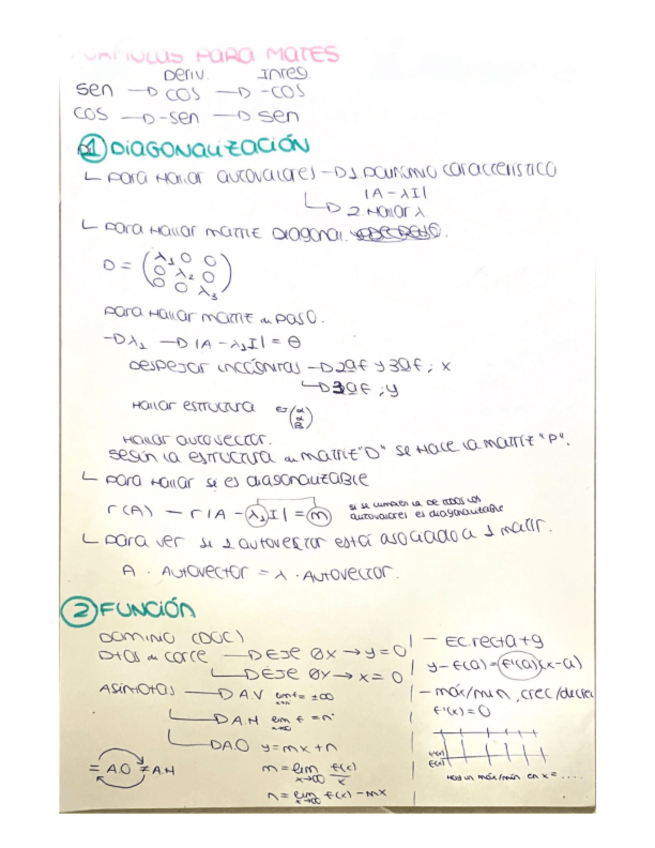 FORMULAS PARA MATES
Deriv. Integ.
sen → cos → -cos
cos → -sen → sen
① DiAGONALiZACiÓN
↳ para hallar autovalores → 1 polinomio característico
|A - λI|
↳ 2. Hallar λ
↳ para hallar matriz Diagonal.
D = (λ₁ 0 0
0 λ₂ 0
0 0 λ₃)
para hallar matriz de paso.
→ λ₁ → |A - λ₁I| = θ
despejar incógnitas → 2ªf y 3ªf ; x
↳ 3ªf ; y
Hallar estructura
Hallar autovector.
según la estructura de matriz "D" se hace la matriz "P".
↳ para hallar si es diagonalizable
r(A) - r|A - λ₁I| = m si se cumple la de todos los
autovalores es diagonalizable
↳ para ver si 1 autovector está asociado a 1 matr.
A · Autovector = λ · Autovector.
② FUNCiÓN
DOMINIO (DOC)
Ptos de corte → EJE OX → y = 0
↳ EJE OY → x = 0
Asíntotas → A.V lim f = ±∞
↳ A.H lim f = n
x→∞
↳ A.O y = mx + n
= A.O ≠ A.H
m = lim f(x)/x
x→∞
n = lim f(x) - mx
x→∞
- EC. recta tg
y - f(a) = f'(a)(x-a)
- máx/mín, crec/decrec
f'(x) = 0
f'(x)
f(x)
Hay un máx/mín en x = ....